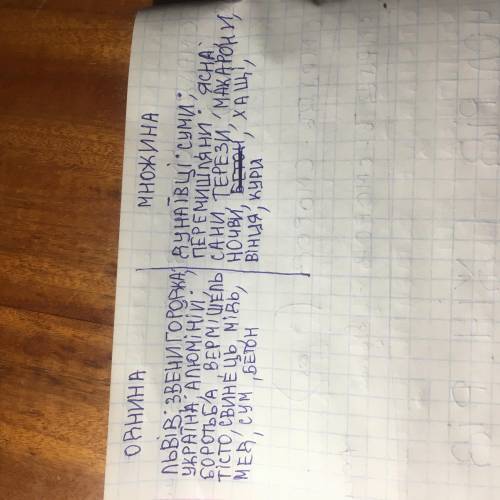 ОДНИНА
ЛЬВІВ, ЗВЕНИГОРОДКА,
УКРАЇНА, АЛЮМІНІЙ,
БОРОТЬБА, ВЕРМІШЕЛЬ
ТІСТО, СВИНЕЦЬ, МІДЬ,
МЕД, СУМ, БЕТОН
МНОЖИНА
ДУНАЇВЦІ, СУМИ,
ПЕРЕМИШЛЯНИ, ЯСНА
САНИ, ТЕРЕЗИ, МАКАРОНИ,
НОЧВИ, БЕТОН, ХАЩІ,
ВІНЦЯ, КУРИ